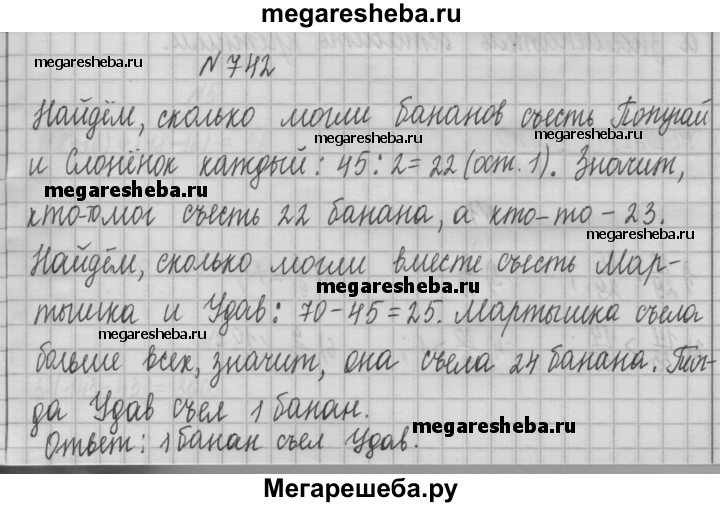 megaresheba.ru
megaresheba.ru
N 742
Найдём, сколько могли бананов съесть Попугай
megaresheba.ru
megaresheba.ru
и Слонёнок каждый: 45:2=22 (ост. 1). Значит,
megaresheba.ru
кто-то мог съесть 22 банана, а кто-то - 23.
megaresheba.ru
Найдём, сколько могли вместе съесть Мар-
megaresheba.ru
тышка и Удав: 70-45=25. Мартышка съела
megaresheba.ru
больше всех, значит, она съела 24 банана. Тог-
да Удав съел 1 банан.
megaresheba.ru
Ответ: 1 банан съел Удав.
Мегарешеба.ру